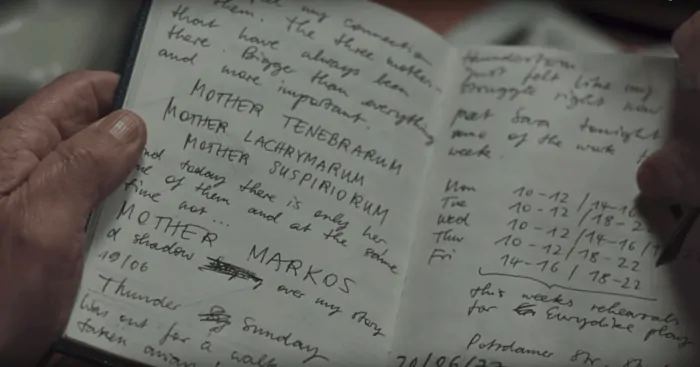 my connection
them. The three mothers
that have always been
there. Bigge than everything
and more important.
MOTHER TENEBRARUM
MOTHER LACHRYMARUM
MOTHER SUSPIRIORUM
And today there is only her
one of them and at the same
time not...
MOTHER MARKOS
a shadow over my story
19/06
Thunder Sunday
Was out for a walk
taken away
thunderstorm
just felt like my
struggle right now
met Sara tonight
some of the work
week.
Mon 10-12 / 14-16
Tue 10-12 / 18-2
Wed 10-12 / 14-16 / 1
Thu 10-12 / 18-22
Fri 14-16 / 18-22
this weeks rehearsals
for Eurydike play
Potsdamer Str.
20/06/77